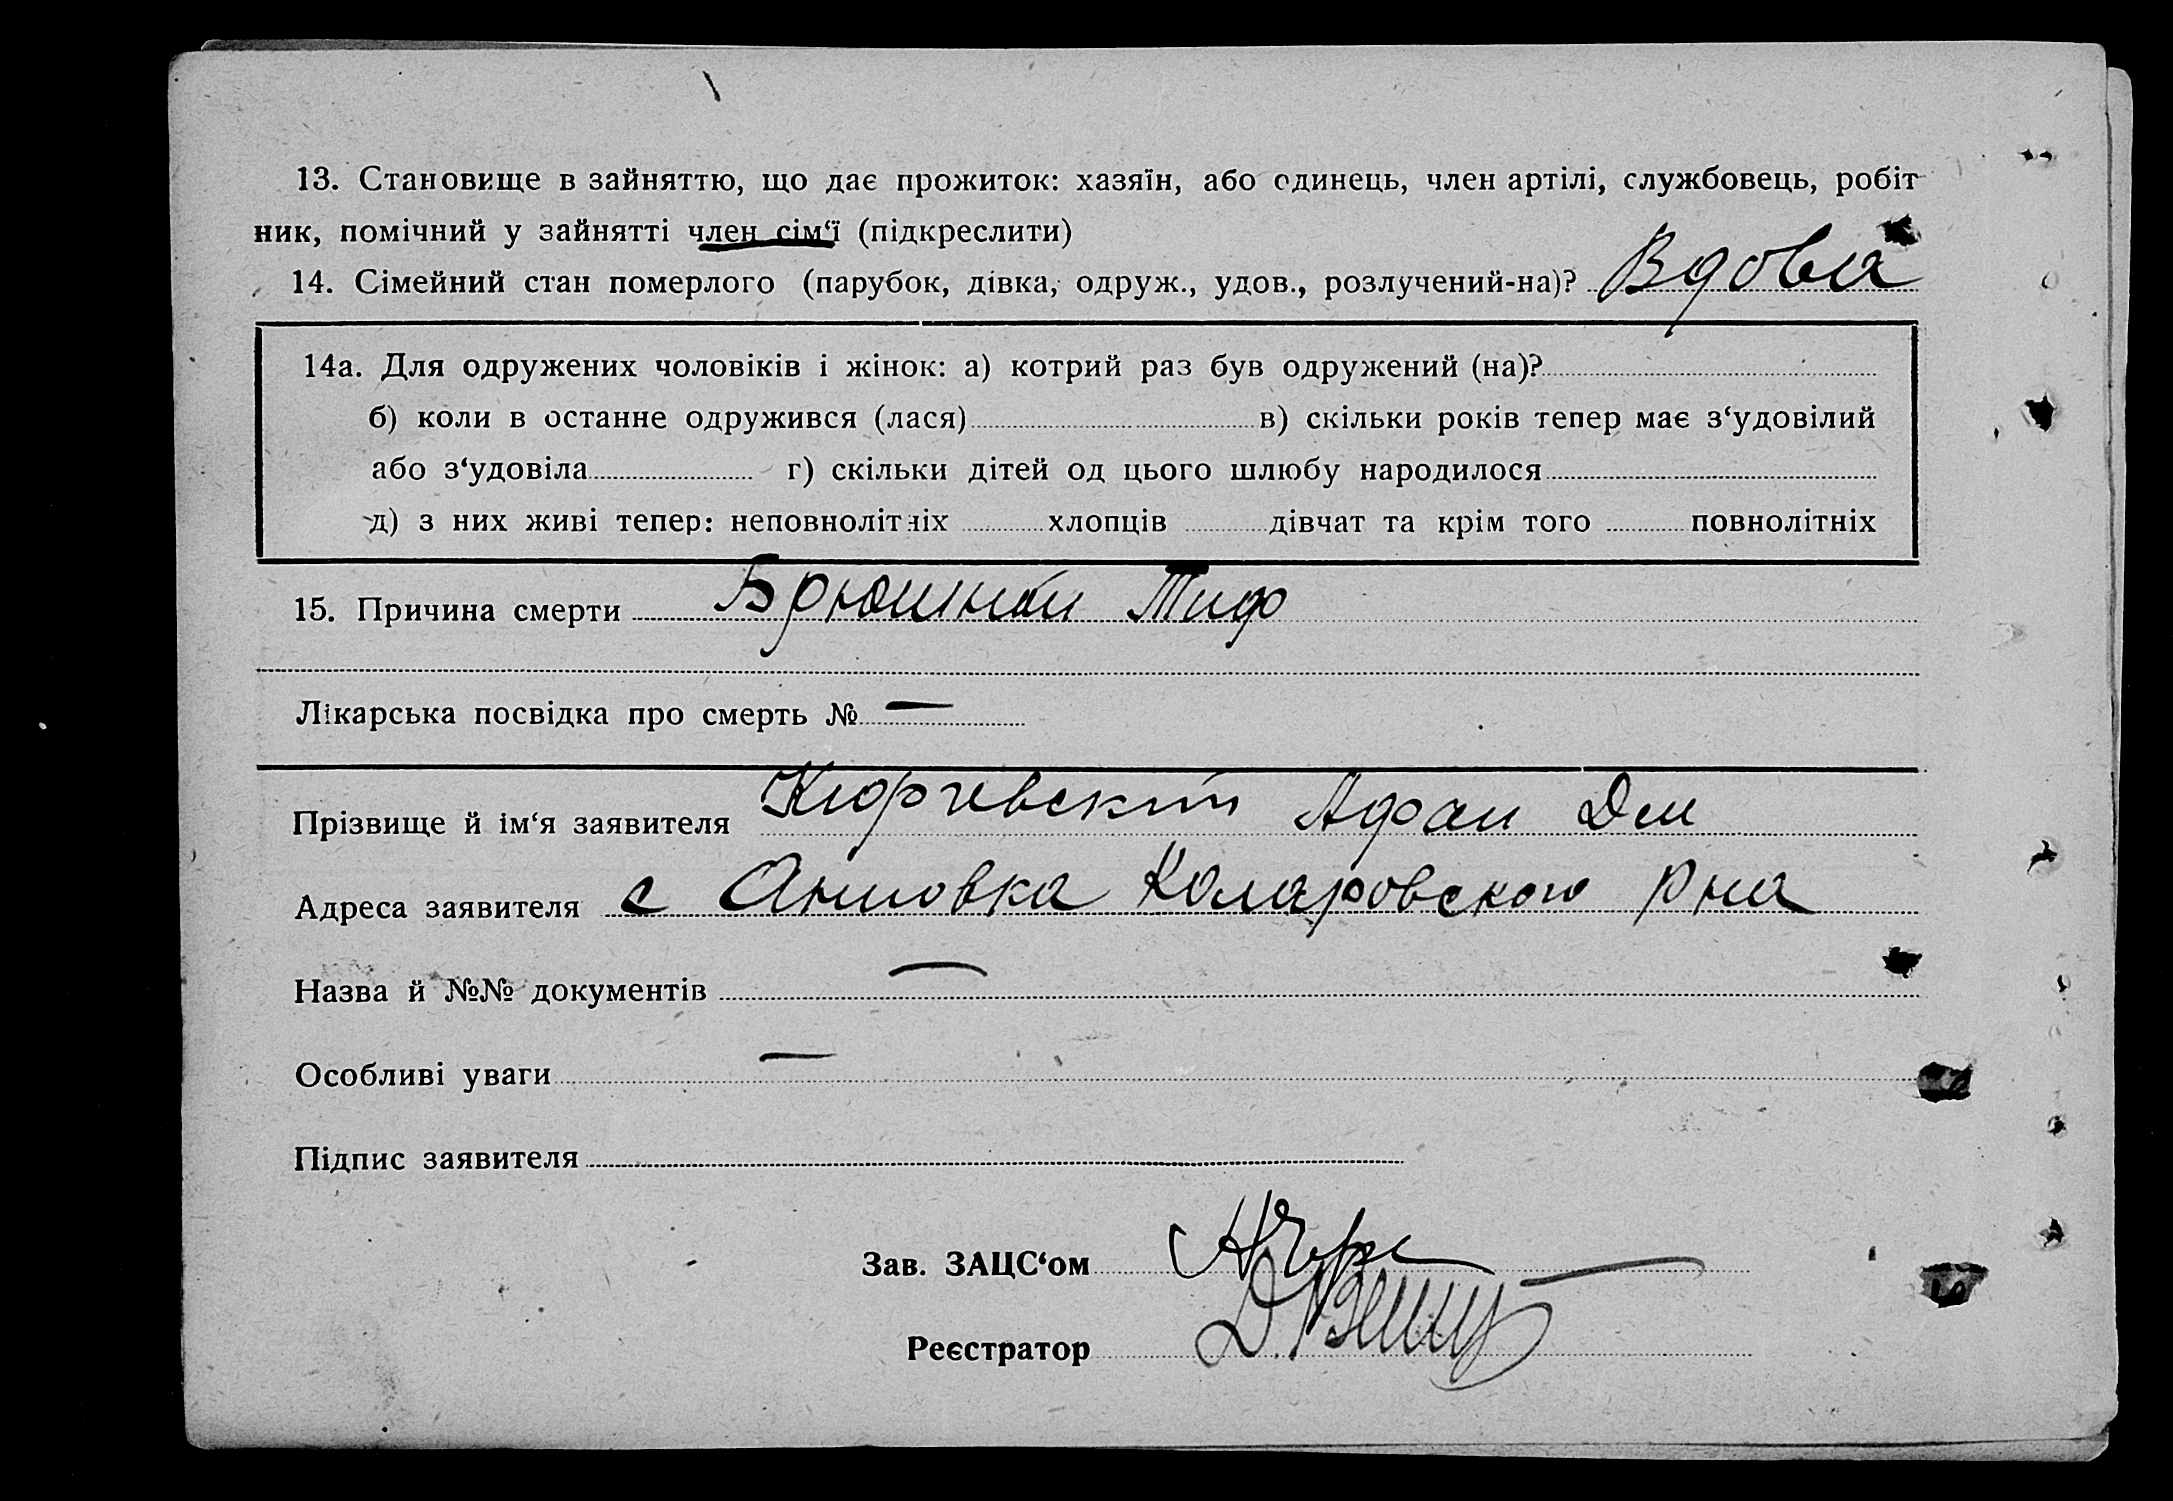 13. Становище в зайняттю, що дає прожиток: хазяїн, або одинець, член артілі, службовець, робіт
ник, помічний у зайнятті член сім‘ї (підкреслити)
14. Сімейний стан померлого (парубок, дівка, одруж., удов., розлучений-на)? Вдова
14а. Для одружених чоловіків і жінок: а) котрий раз був одружений (на)?
б) коли в останне одружився (лася) в) скільки років тепер має з‘удовілий
або з‘удовіла г) скільки дітей од цього шлюбу народилося
д) з них живі тепер: неповнолітніх хлопців дівчат та крім того повнолітніх
15. Причина смерти Брюшной Тиф
Лікарська посвідка про смерть № —
Прізвище й ім‘я заявителя Кюрчевский Афан Дм
Адреса заявителя с Анновка Коларовского рна
Назва й №№ документів —
Особливі уваги —
Підпис заявителя
Зав. ЗАЦС‘ом
Реєстратор